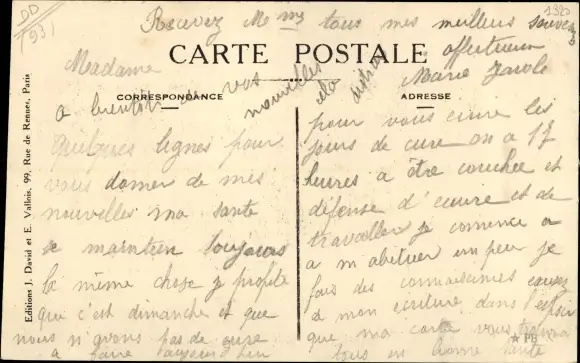 DD
1931
1320
Recevez Mme tous mes meilleurs souvenirs
affectueux
Marie
CARTE POSTALE
CORRESPONDANCE
ADRESSE
Editions J. David et E. Vallois, 99, Rue de Rennes, Paris
Madame
a bientôt de vos nouvelles
quelques lignes pour
vous donner de mes
nouvelles ma sante
se maintien toujours
la même chose je profite
que c'est dimanche et que
nous n'avons pas de cure
a faire aujourd'hui
pour vous ecrire les
jours de cure on a 17
heures a être couchée et
défense d'ecrire et de
travailler je comence a
a m abituer un peu je
fais des connaissances excusez
de mon ecriture dans l'espoir
que ma carte vous trouvera
tous en bonne sante
★ PB